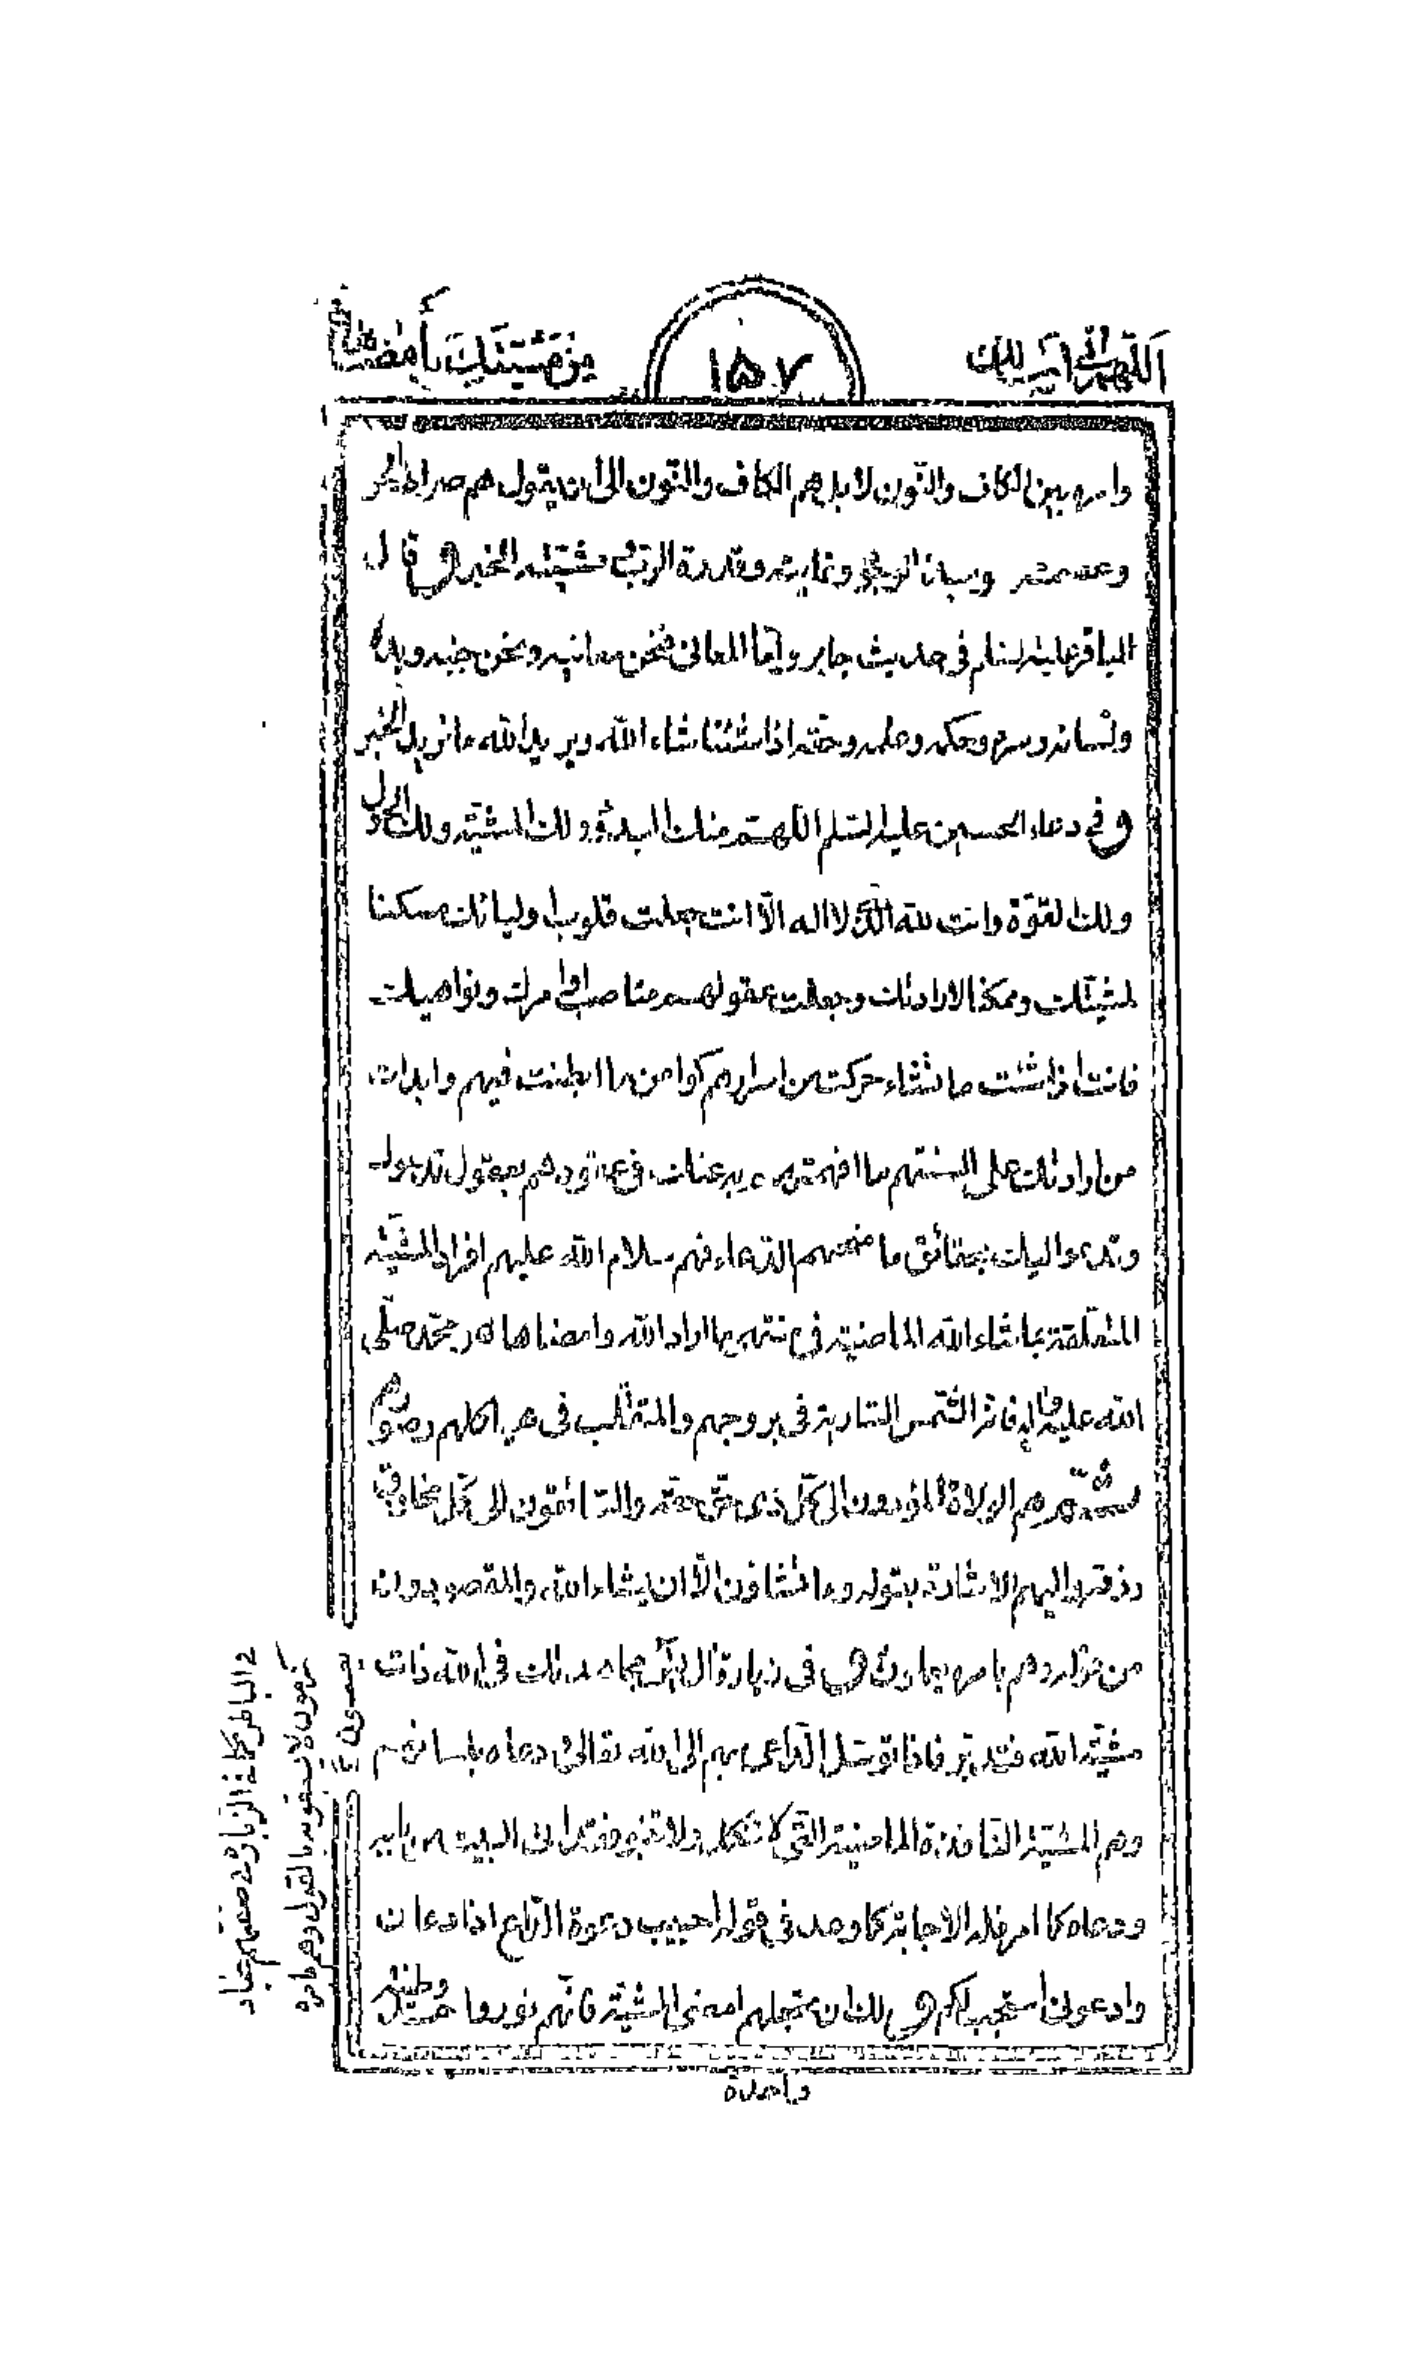 اَللّهُمَّ اِنّي اَسْئَلُكَ
١٥٧
مِنْ مَشِيَّتِكَ بِأَمْضاها
وامره بين الكاف والنّون لا بل هم الكاف والنّون الى أن يقول هم صراط الحق
وعصمته ومبدأ الوجود وغايته وقدرة الربّ ومشيّته الخبر وقال
الباقر عليه السلام في حديث جابر وامّا المعاني فنحن معانيه ونحن جنبه ويده
ولسانه وامره وحكمه وعلمه وحقّه اذا شئنا شاء الله ويريد الله ما نريد الخبر
وفي دعاء الحسين عليه السّلم اللّهمّ منك البدؤ ولك المشيّة ولك الحول
ولك القوّة وانت الله الّذي لا اله الّا انت جعلت قلوب اوليائك مسكنا
لمشيّتك وممكنا لارادتك وجعلت عقولهم مناصب اوامرك ونواهيك
فانت اذا شئت ما تشاء حركت من اسرارهم كوامن ما ابطنت فيهم وابدات
من ارادتك على السنتهم ما افهمتهم به عنك في عقودهم بعقول تدعوك
وتدعو اليك بحقائق ما منحتهم الدّعاء فهم سلام الله عليهم افراد المشيّة
المتعلّقة بما شاء الله الماضية في ما اراد الله وامضاها محمّد صلّى
الله عليه واله فانّه الشّمس السّارية في بروجهم والمتقلّب في هياكلهم وصورهم
ثمّ هم الولاة المؤدون الى كلّ ذى حقّ حقّه والسّائقون الى كلّ مخلوق
رزقه واليهم الاشارة بقوله وما تشاؤن الّا ان يشاء الله والمقصودون
من في زيارة مجاهدتك في الله ذات
مشيّة الله فتدبّر فاذا توسّل الدّاعى بهم الى الله تعالى دعاه بلسانهم
وهم المشيّة النّافذة الماضية الّتي لا فقد اتى البيت من بابه
ودعاه كما امر فله الاجابة كما وعد في قوله اجيب دعوة الدّاع اذا دعان
وادعوني استجب لكم ولك ان تجعلهم امضى المشيّة فانّهم نور واحد وطينة
واحدة
يعصون
يسبقونه بالقول وهم بامره
الزّيارة في صفتهم عباد